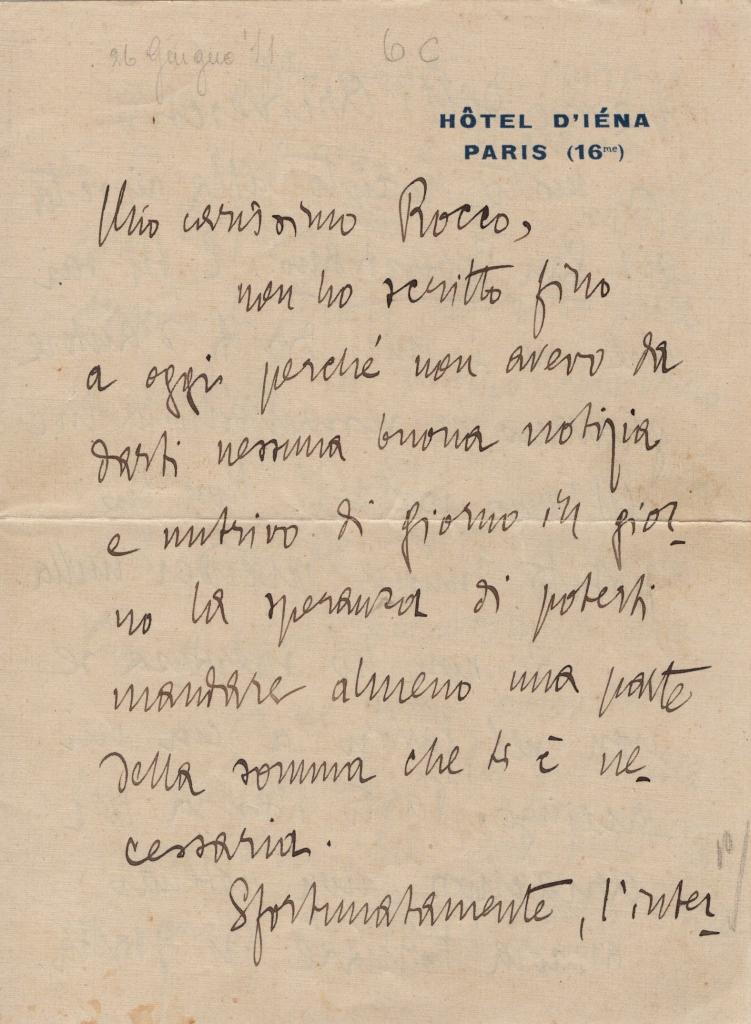 26 Giugno '11
6 C
HÔTEL D'IÉNA
PARIS (16me)
Mio carissimo Rocco,
non ho scritto fino
a oggi perché non avevo da
darti nessuna buona notizia
e nutrivo di giorno in gior-
no la speranza di poterti
mandare almeno una parte
della somma che ti è ne-
cessaria.
Sfortunatamente, l'inter-